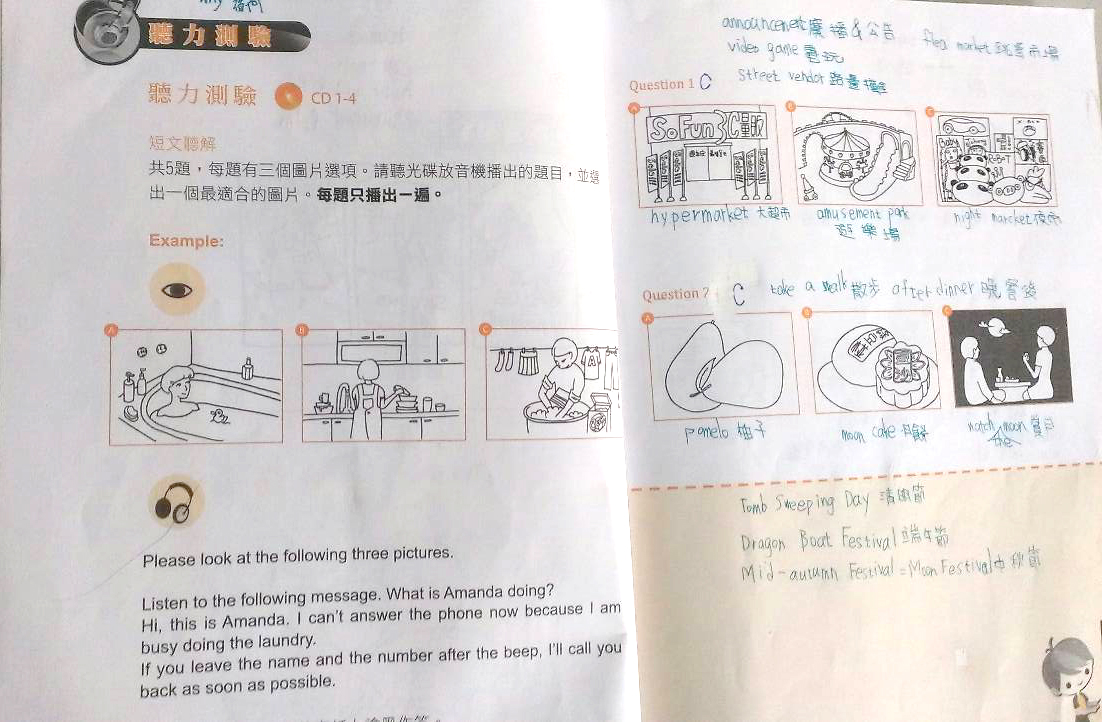 聽力測驗
聽力測驗 CD 1-4
短文聽解
共5題，每題有三個圖片選項。請聽光碟放音機播出的題目，並選
出一個最適合的圖片。每題只播出一遍。
Example:
A
B
C
Please look at the following three pictures.
Listen to the following message. What is Amanda doing?
Hi, this is Amanda. I can't answer the phone now because I am
busy doing the laundry.
If you leave the name and the number after the beep, I'll call you
back as soon as possible.
announcement 廣播&公告
flea market 跳蚤市場
video game 電玩
street vendor 路邊攤
Question 1 C
A
B
C
SoFun 3C量販
hypermarket 大超市
amusement park
遊樂場
night marcket 夜市
Question 2 C
take a walk 散步 after dinner 晚餐後
A
B
C
pomelo 柚子
moon cake 月餅
watch the moon 賞月
Tomb Sweeping Day 清明節
Dragon Boat Festival 端午節
Mid-autumn Festival = Moon Festival 中秋節